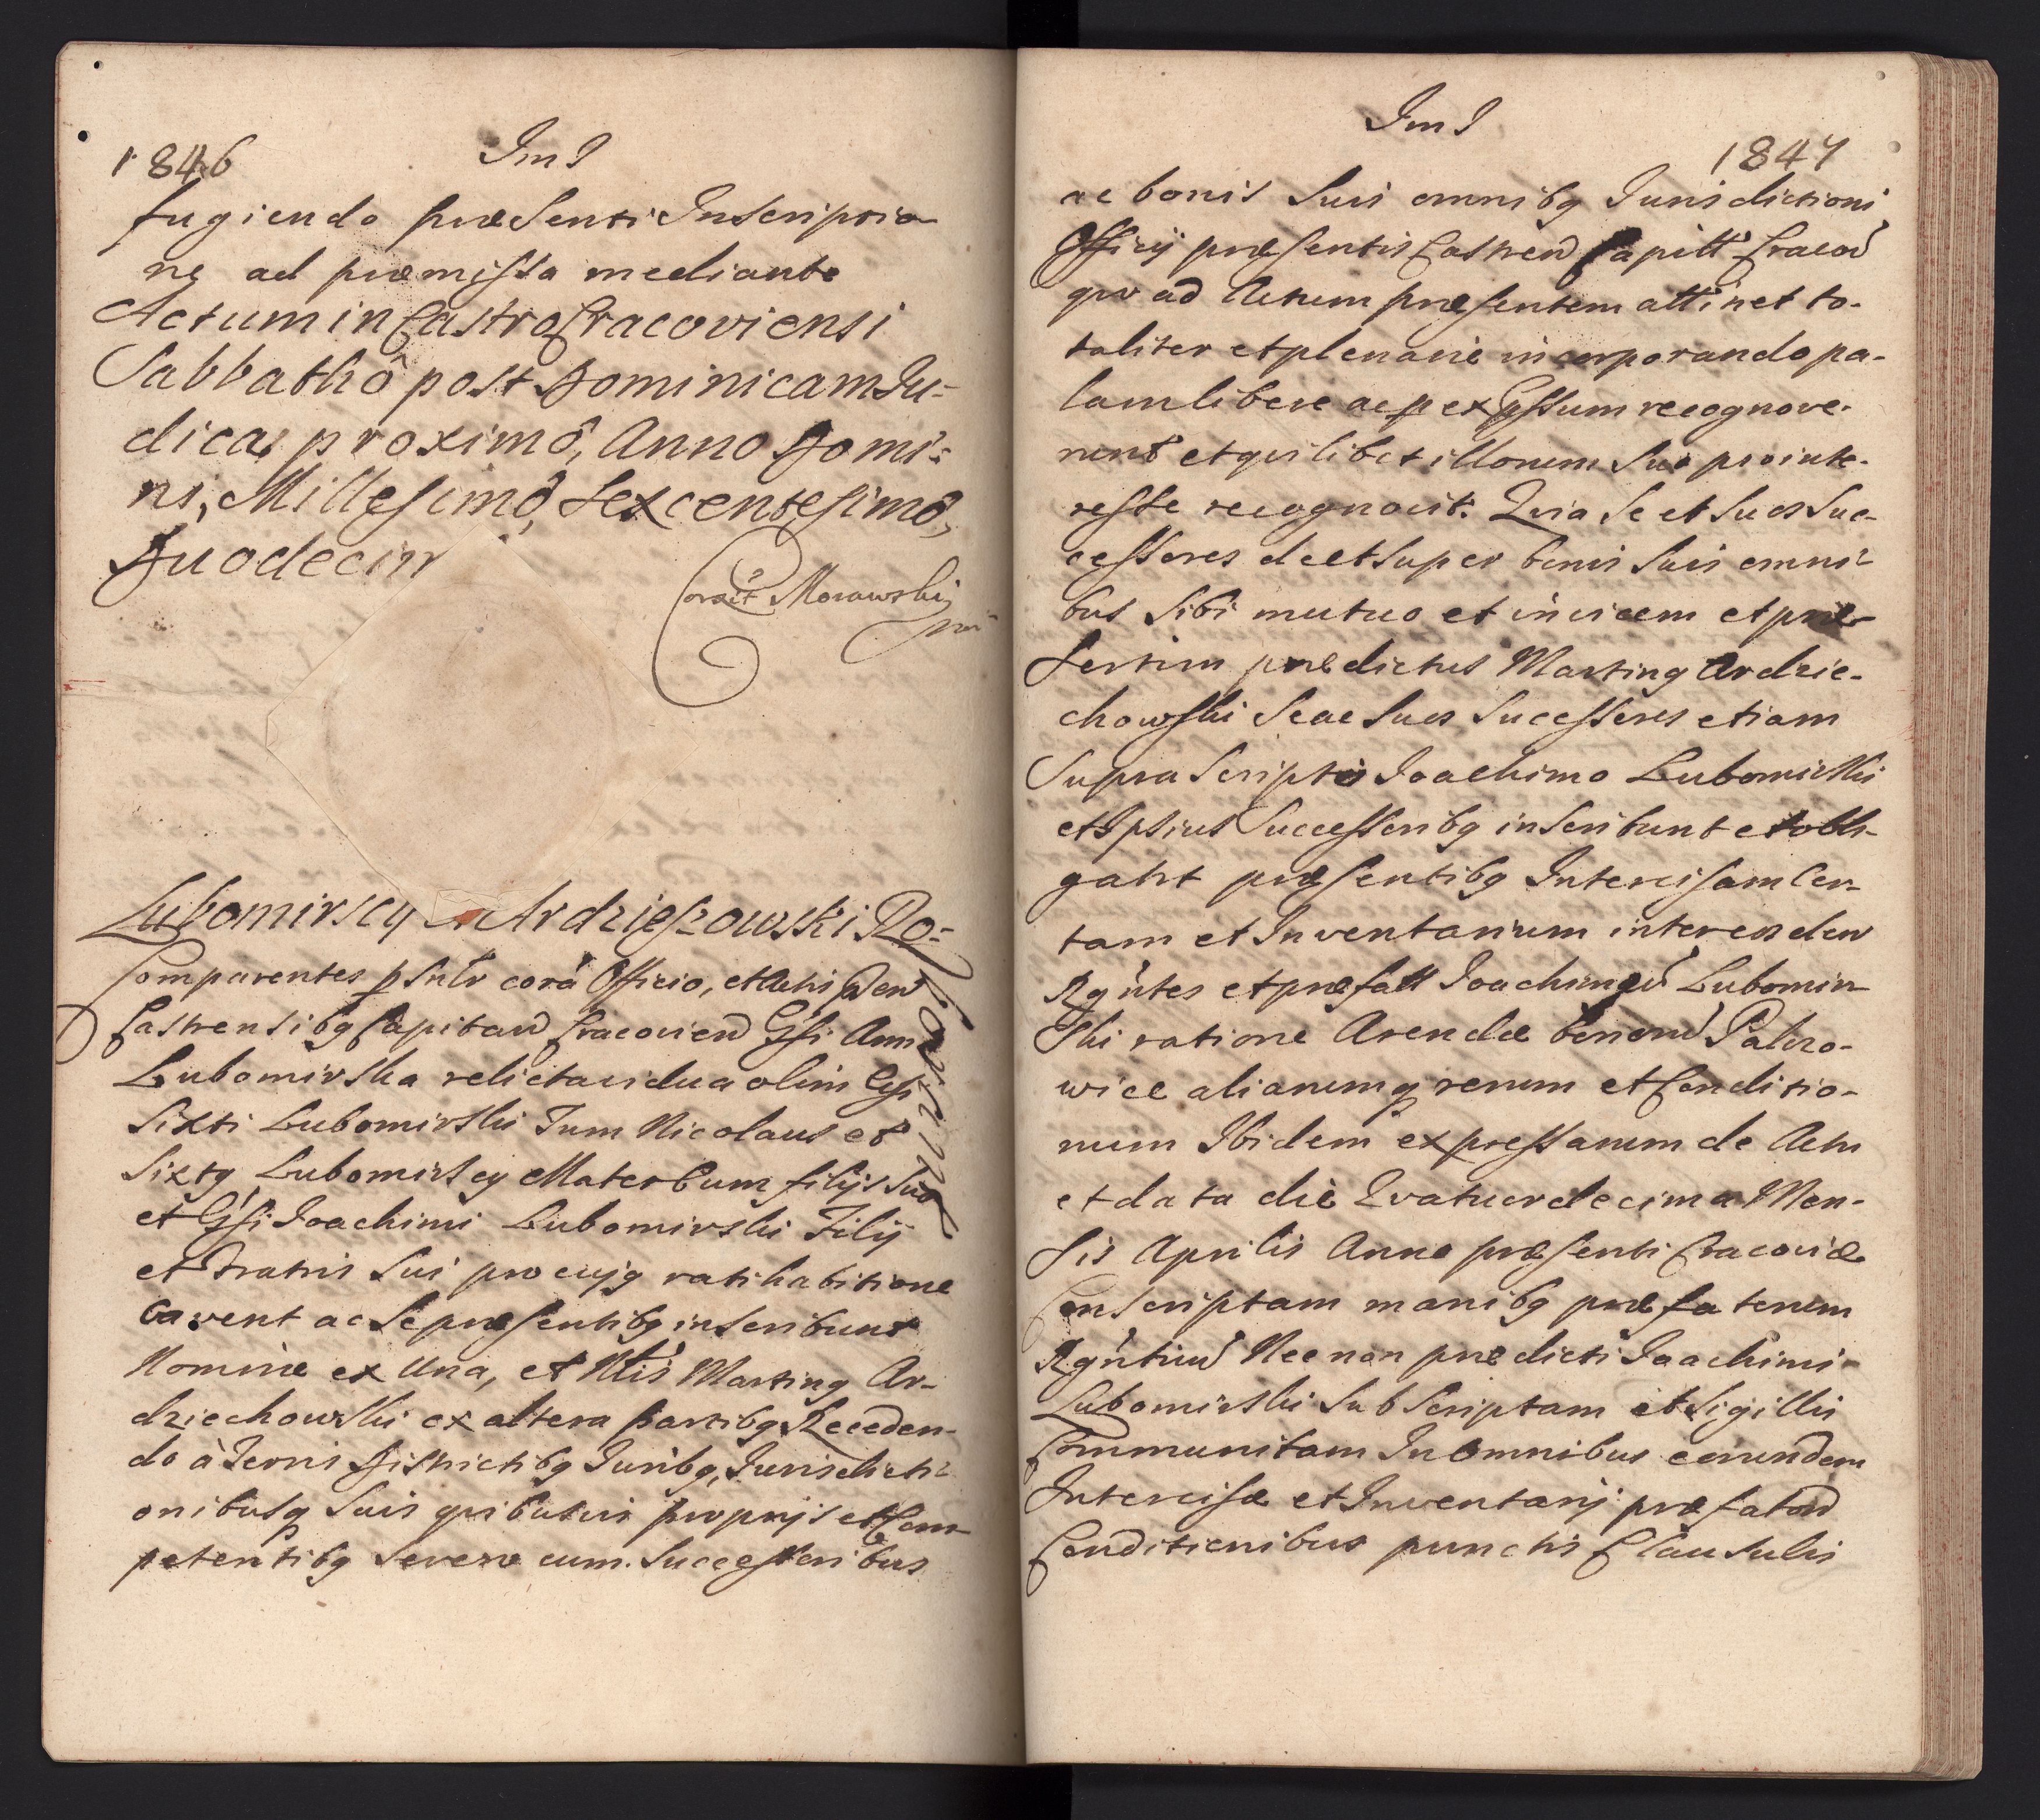 1846
Im I
fugiendo præsenti Inscriptio-
ne ad præmissa mediante
Actum in Castro Cracoviensi
Sabbathô post Dominicam Ju-
dica proximô, Anno Domi-
ni, Millesimô, Sexcentesimô,
Duodecim
Corait Morawski
Lubomirscy Ardzieszowski Ro-
borant
Comparentes psntr corā Officio, et Actis pden
Castrensibq Capitan Cracovien Gsi Anna
Lubomirska relicta vidua olim Gsi
Sixti Lubomirski Tum Nicolaus et
Sixtq Lubomirscy Mater cum filijs suis
et Gsi Joachimi Lubomirski Filij
et Fratris sui pro cujq ratihabitione
cavent ac se præsentibq inscribunt
Nomine ex una, et Nlis Martinq Ar-
dziechowski ex altera partibq Receden-
do à Terris Districtibq Juribq, Jurisdicti-
onibusq suis quibusvis proprijs et Com-
petentibq Seve cum Successoribus
Im I
1847
ac bonis suis omnibq Jurisdictioni
Officij præsentis Castren Capitt Cracov
qvo ad Actum præsentem attinet to-
taliter et plenarie incorporando pa-
lam libere ac p expssum recognove-
runt et quilibet illorum sua pro inte-
resse recognovit. Qvia se et suos suc-
cessores de et super bonis suis omni-
bus sibi mutuo et invicem et præ-
sertim prædictus Martinq Ardzie-
chowski se ac suos sucessores etiam
supra scripto Joachimo Lubomirski
et Ipsius Successoribq inscribunt et obli-
gant præsentibq Intercisam Cer-
tam et Inventarium inter eosdem
Rgntes et præfatt Joachimum Lubomir-
ski ratione Arendæ bonorū Palczo-
wice aliarumq rerum et Conditio-
num Ibidem expressarum de Actu
et data die Qvatuordecima Men-
sis Aprilis Anno præsenti Cracoviæ
Conscriptam manibq præfatorum
Rgntium Nec non prædicti Joachimi
Lubomirski subscriptam et sigillis
Communitam In omnibus earundem
Intercisæ et Inventarij præfator
Conditionibus punctis Clausulis